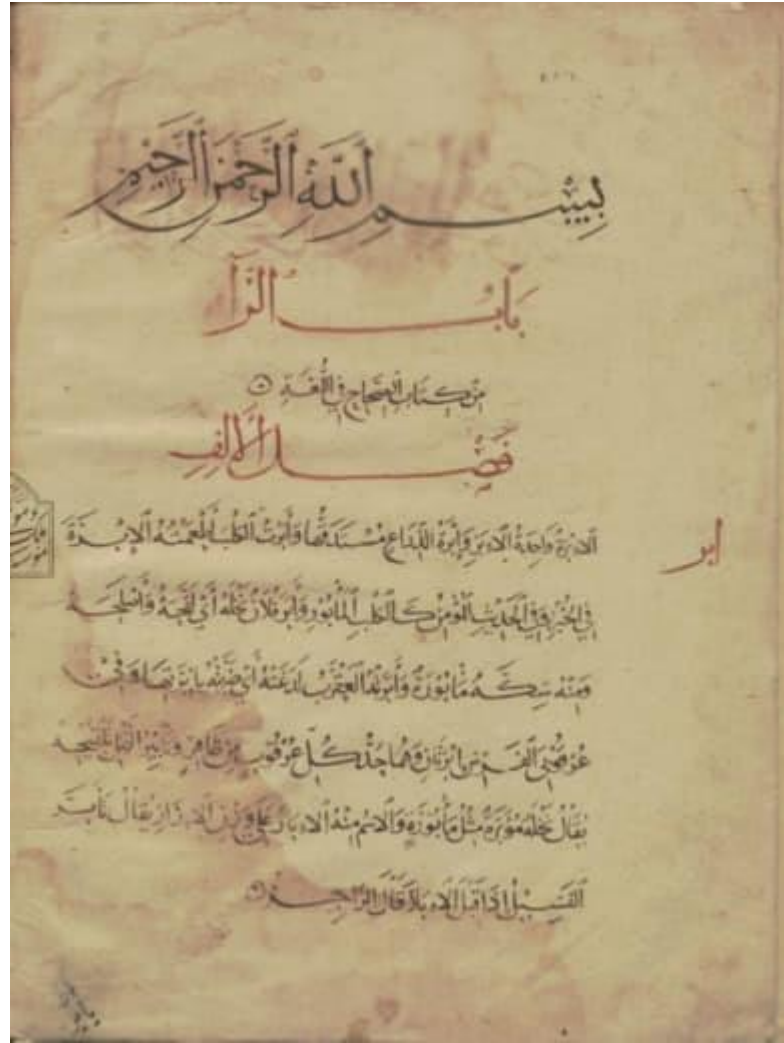 بِسْمِ اللَّهِ الرَّحْمَنِ الرَّحِيمِ
بَابُ الرَّاءِ
مِنْ كِتَابِ الصِّحَاحِ فِي اللُّغَةِ
فَصْلُ الْأَلِفِ
أبر
الابرة واحدة الابر وابرة الذراع مستدقها وأبرت الكلب أطعمته الابرة
في الخبز وفي الحديث المؤمن كالكلب المأبور وأبر فلان نخله أي لقحه وأصلحه
ومنه سكة مأبورة وأبرته العقرب لدغته أي ضربته بابرتها وفي
عرقوبي الفرس ابرتان وهما حد كل عرقوب من ظاهر وتأبير النخل تلقيحه
يقال نخلة مؤبرة مثل مأبورة والاسم منه الابار على وزن الازار يقال تأبر
الفسيل اذا قبل الابار قال الراجز